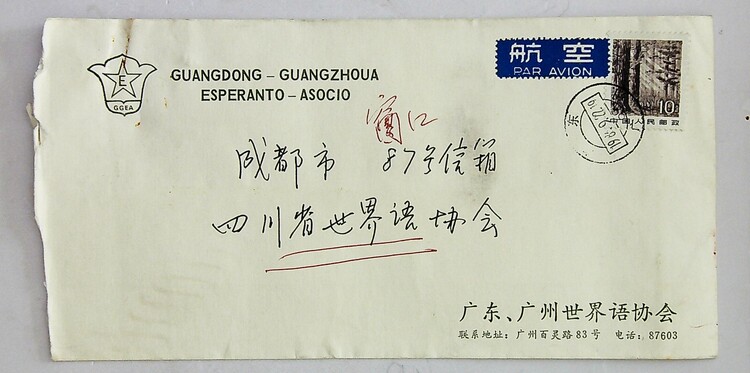 E
GGEA
GUANGDONG – GUANGZHOUA
ESPERANTO – ASOCIO
航空
PAR AVION
10
中国人民邮政
成都市 87号信箱
四川省世界语协会
广东、广州世界语协会
联系地址：广州百灵路83号 电话：87603